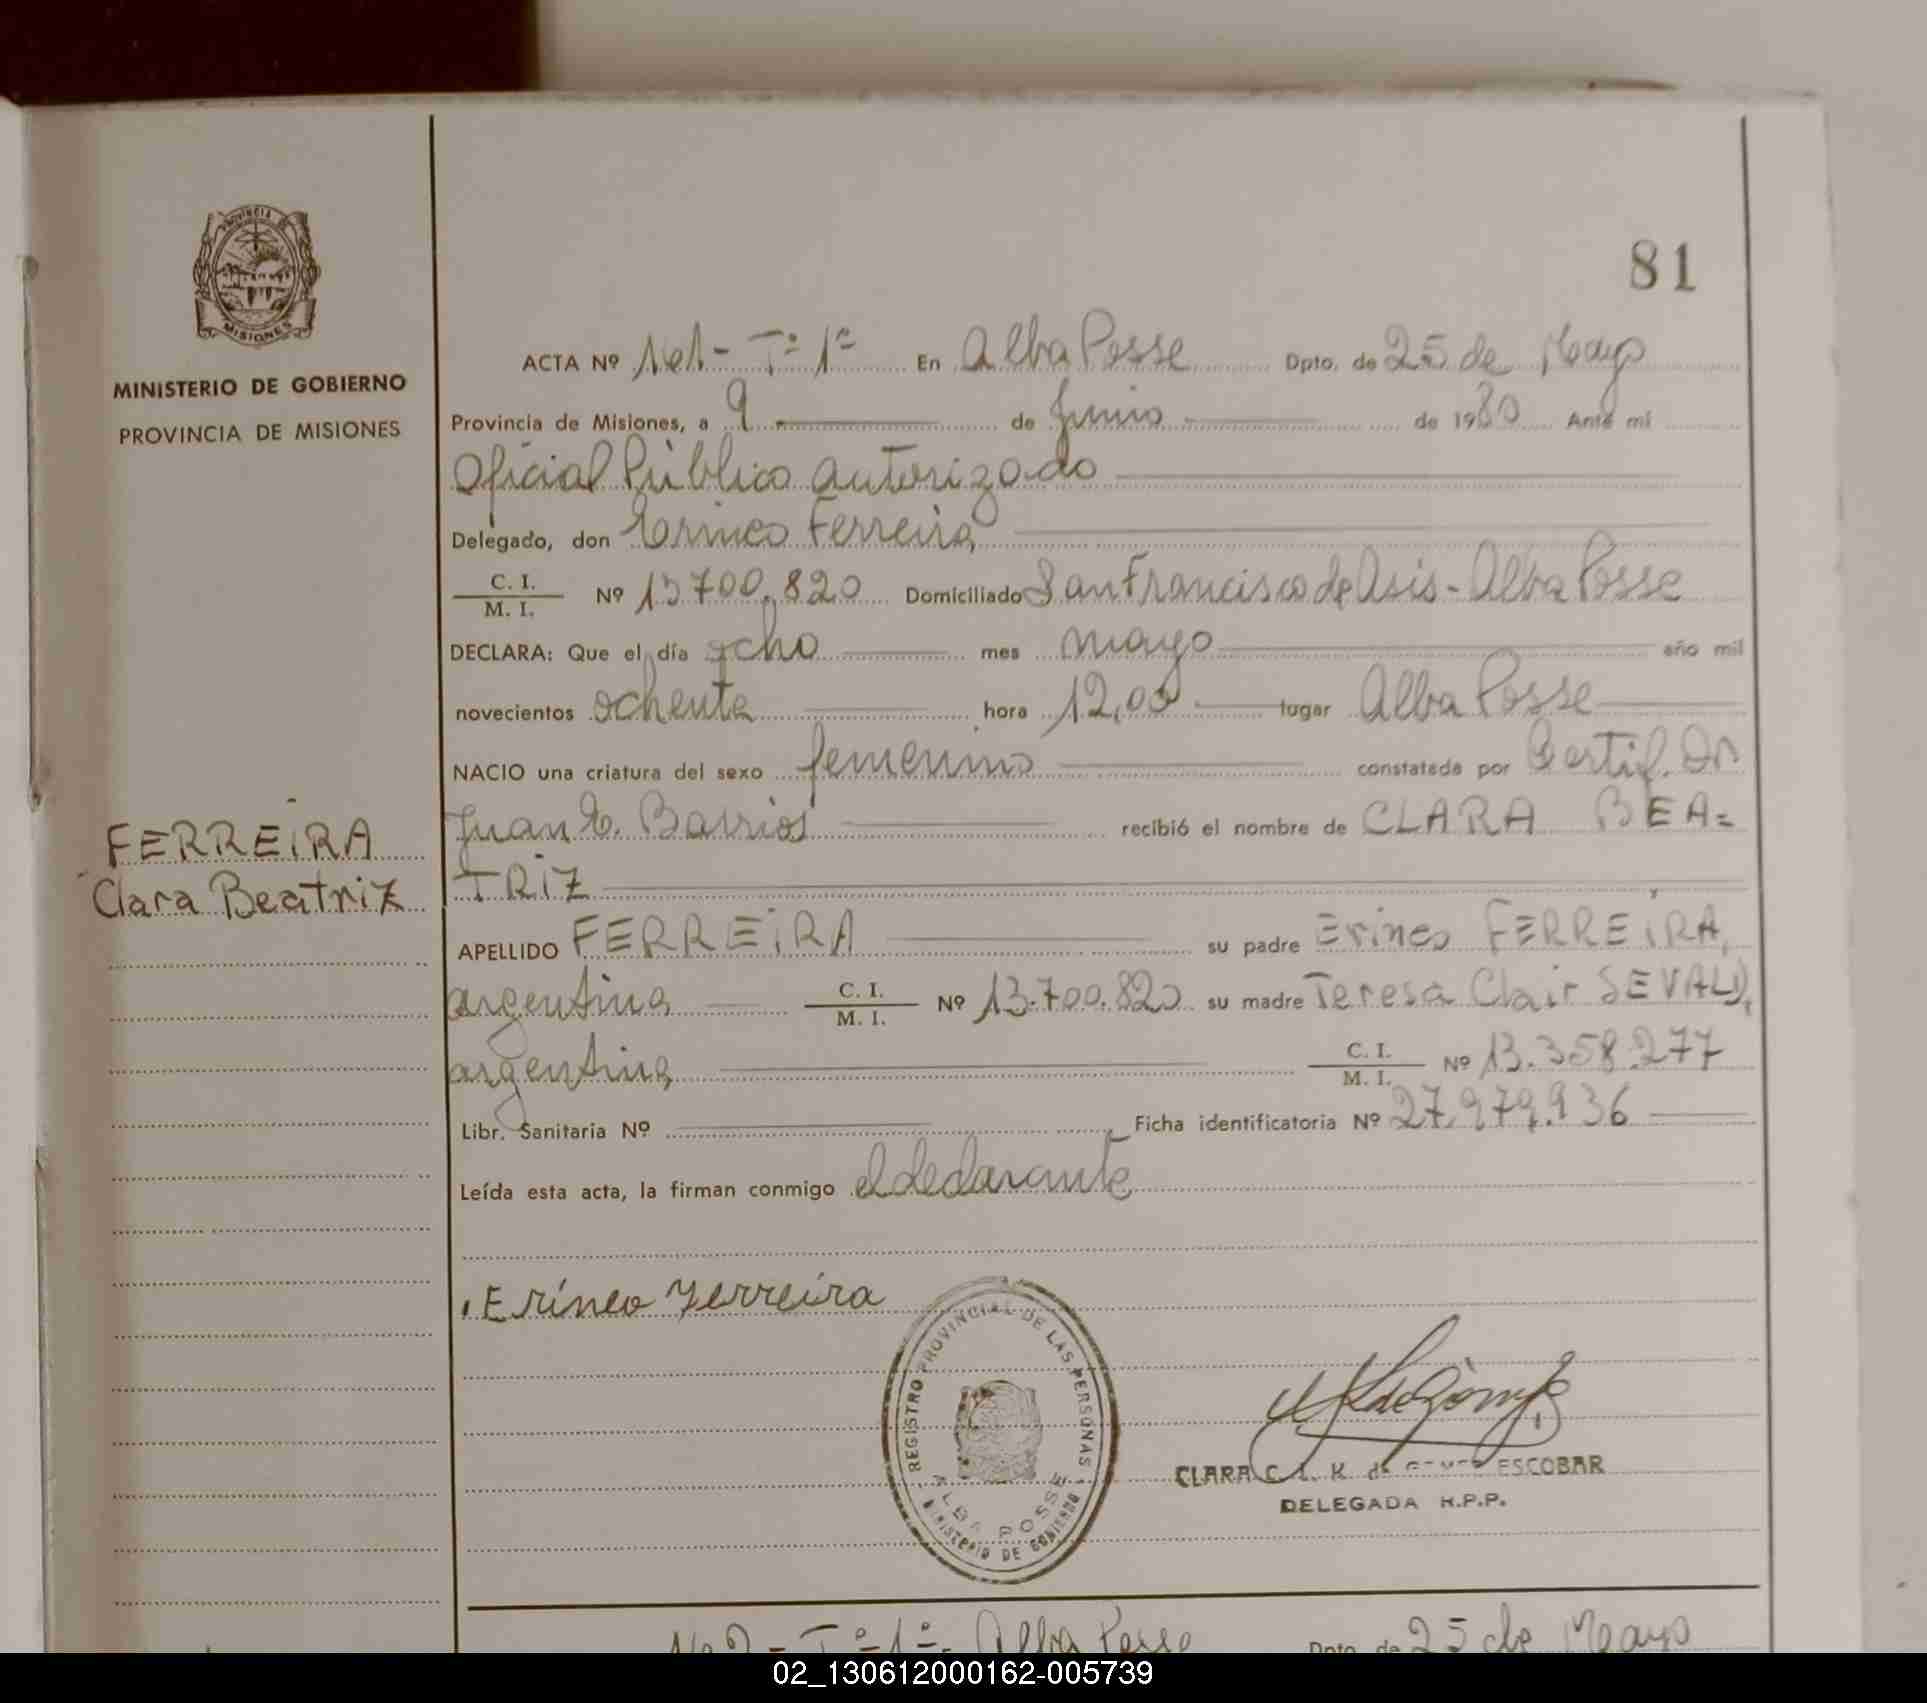 81
PROVINCIA DE
MISIONES
MINISTERIO DE GOBIERNO
PROVINCIA DE MISIONES
ACTA Nº 161- Tº 1º En Alba Posse Dpto. de 25 de Mayo
Provincia de Misiones, a 9 de Junio de 1980 Ante mi
Oficial Público autorizado
Delegado, don Erineo Ferreira
C. I.
M. I. Nº 13700.820 Domiciliado San Francisco de Asis - Alba Posse
DECLARA: Que el día ocho mes mayo año mil
novecientos ochenta hora 12,00 lugar Alba Posse
NACIO una criatura del sexo femenino constatada por Certif. Dr
Juan E. Barrios recibió el nombre de CLARA BEA=
TRiZ
FERREiRA
Clara Beatriz
APELLIDO FERREiRA su padre Erineo FERREiRA,
argentina C. I.
M. I. Nº 13.700.820 su madre Teresa Clair SEVALD,
argentina C. I.
M. I. Nº 13.358.277
Libr. Sanitaria Nº Ficha identificatoria Nº 27.979.936
Leída esta acta, la firman conmigo el declarante
Eríneo Ferreira
REGISTRO PROVINCIAL DE LAS PERSONAS
ALBA POSSE
MINISTERIO DE GOBIERNO
CLARA C. L. K. de ESCOBAR
DELEGADA R.P.P.
162 - Tº - 1º - Alba Posse Dpto. de 25 de Mayo
02_130612000162-005739